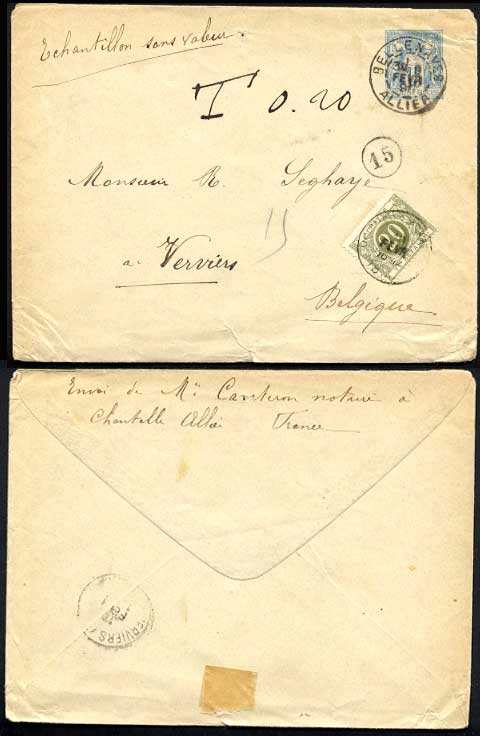 Echantillon sans valeur.
BELLENAVES
FEVR
ALLIER
T 0.20
15
Monsieur R. Seghaye
20
a Verviers
15
Belgique
Envoi de Mr Carteron notaire à
Chantelle Allier France
VERVIERS